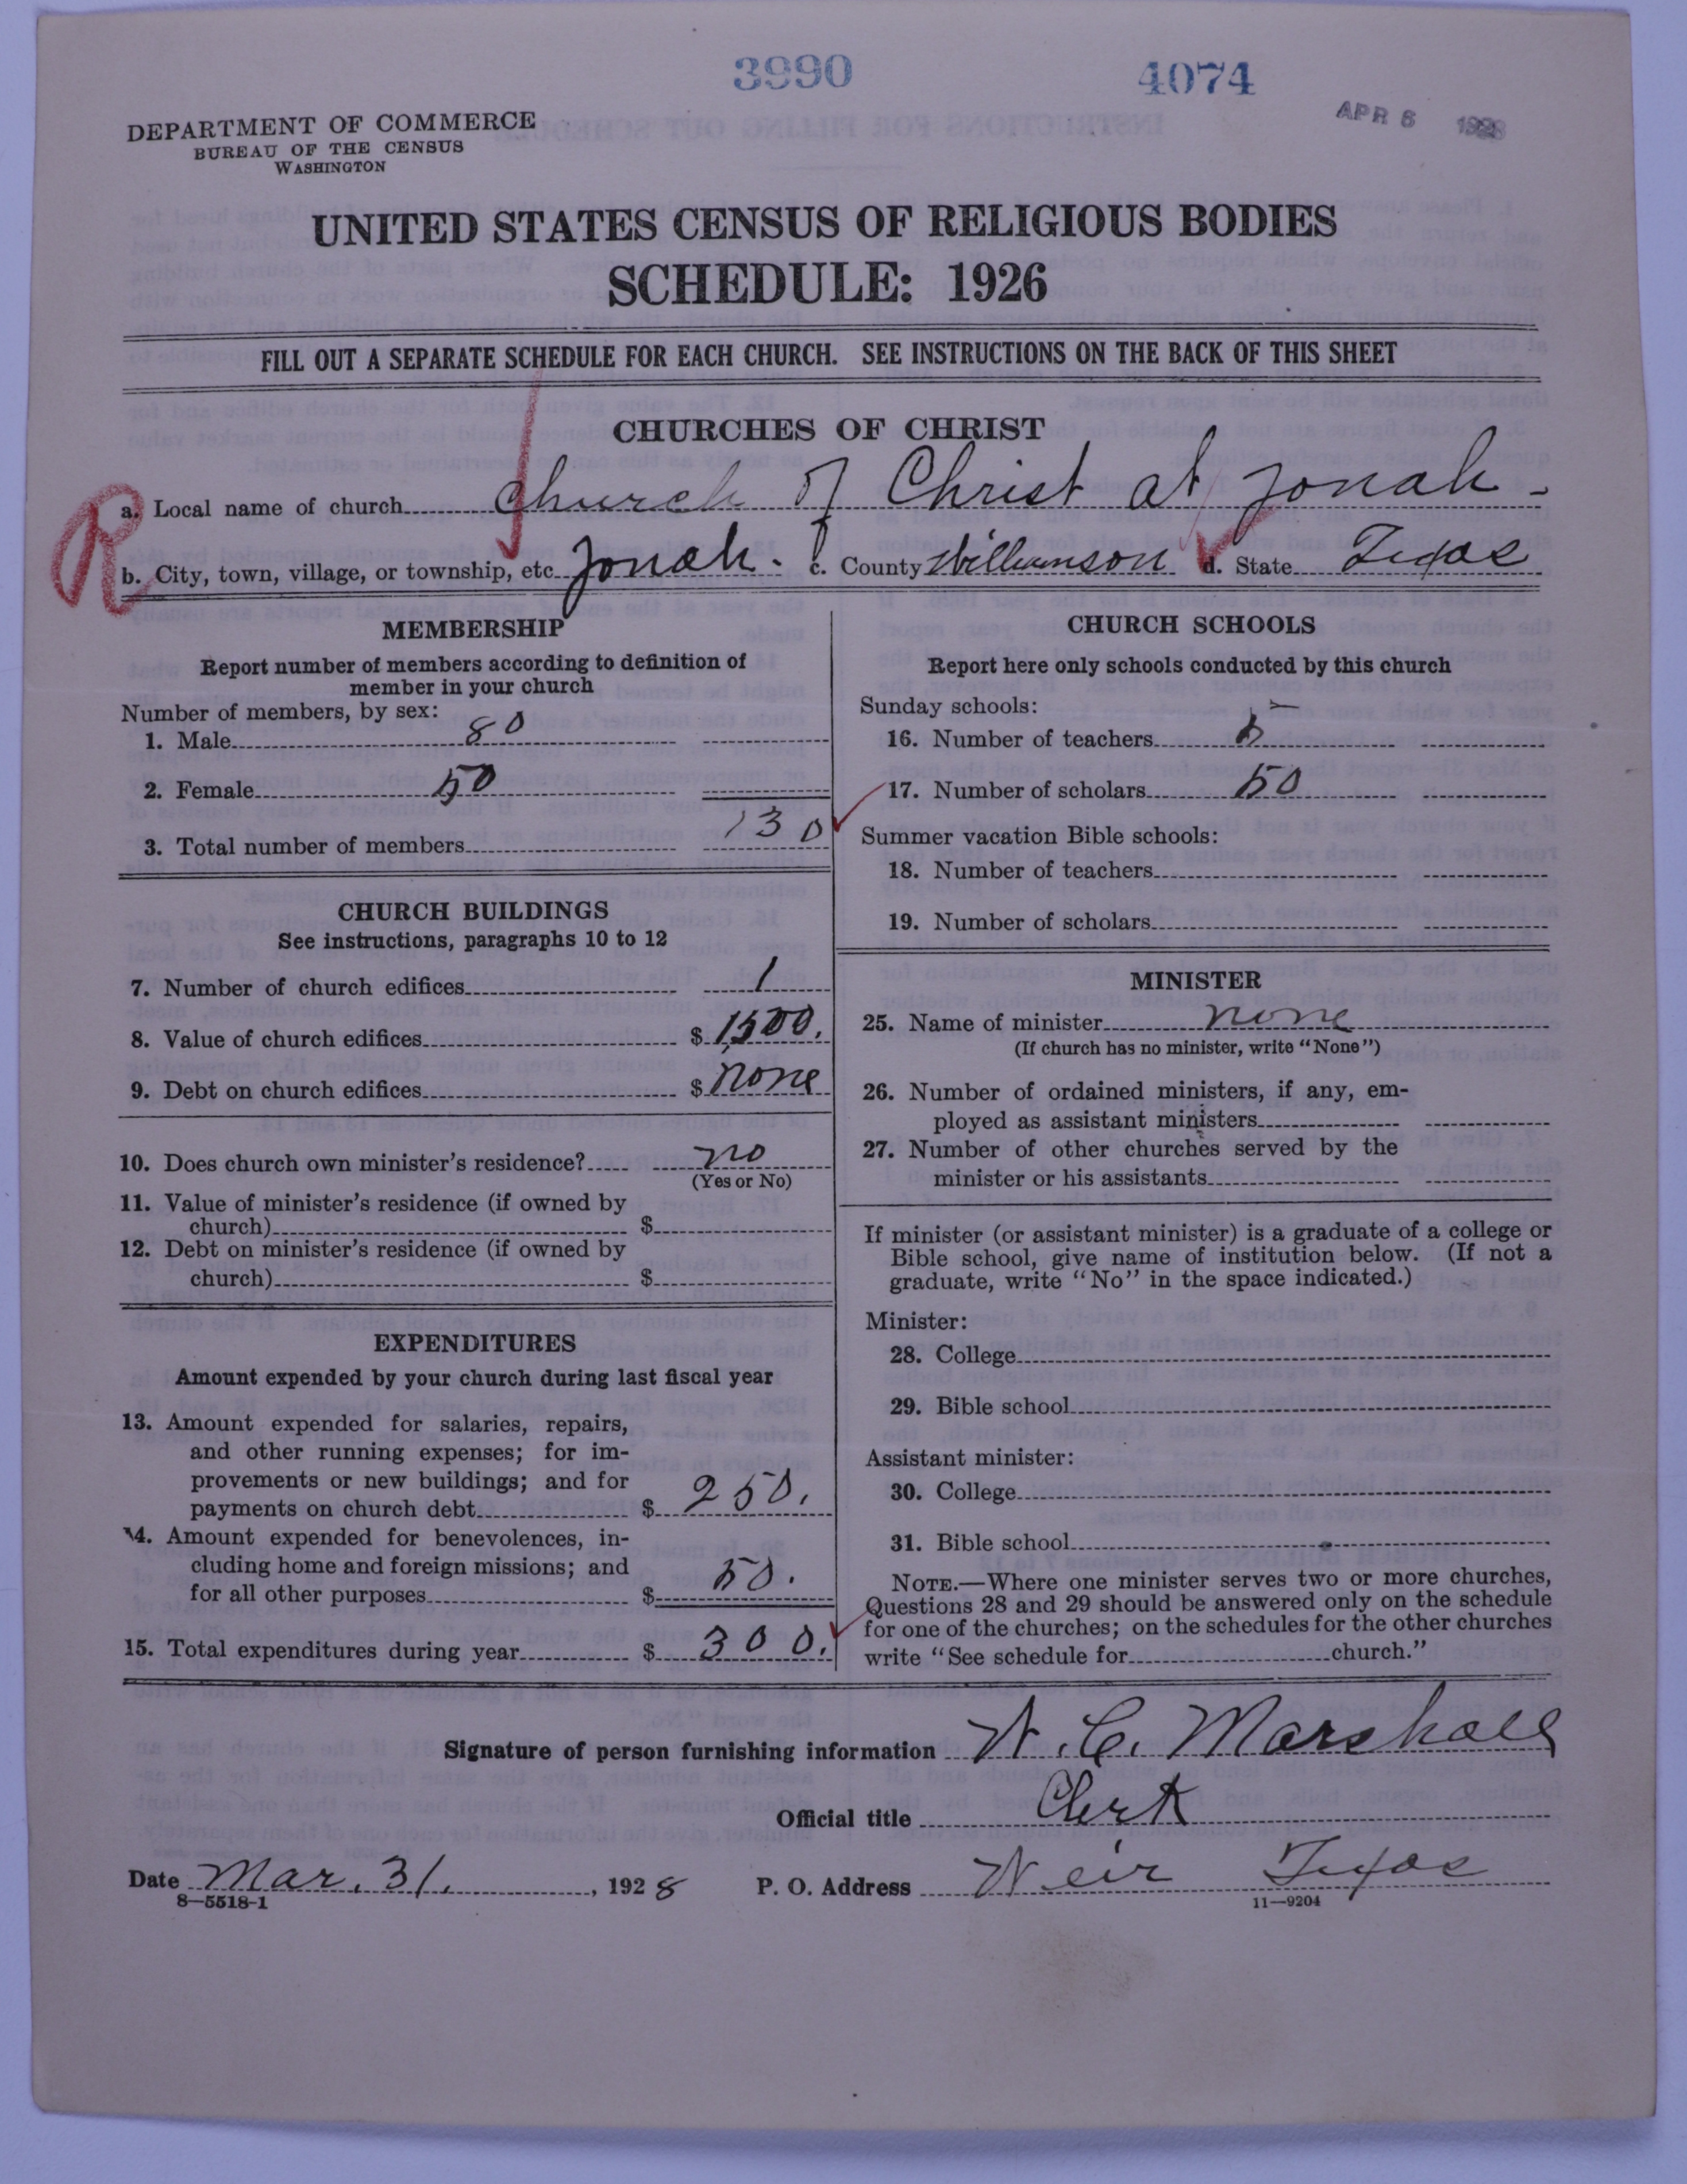 3990 4074
APR 6 1928
DEPARTMENT OF COMMERCE
BUREAU OF THE CENSUS
WASHINGTON
UNITED STATES CENSUS OF RELIGIOUS BODIES
SCHEDULE: 1926
FILL OUT A SEPARATE SCHEDULE FOR EACH CHURCH. SEE INSTRUCTIONS ON THE BACK OF THIS SHEET
CHURCHES OF CHRIST
R
a. Local name of church Church of Christ at Jonah -
b. City, town, village, or township, etc. Jonah. c. County Williamson d. State Texas
MEMBERSHIP
Report number of members according to definition of
member in your church
Number of members, by sex:
1. Male 80
2. Female 50
3. Total number of members 130
CHURCH BUILDINGS
See instructions, paragraphs 10 to 12
7. Number of church edifices 1
8. Value of church edifices $ 1500.
9. Debt on church edifices $ none
10. Does church own minister's residence? no
(Yes or No)
11. Value of minister's residence (if owned by
church) $
12. Debt on minister's residence (if owned by
church) $
EXPENDITURES
Amount expended by your church during last fiscal year
13. Amount expended for salaries, repairs,
and other running expenses; for im-
provements or new buildings; and for
payments on church debt $ 250.
14. Amount expended for benevolences, in-
cluding home and foreign missions; and
for all other purposes $ 50.
15. Total expenditures during year $ 300.
CHURCH SCHOOLS
Report here only schools conducted by this church
Sunday schools:
16. Number of teachers 5
17. Number of scholars 50
Summer vacation Bible schools:
18. Number of teachers
19. Number of scholars
MINISTER
25. Name of minister none
(If church has no minister, write "None")
26. Number of ordained ministers, if any, em-
ployed as assistant ministers
27. Number of other churches served by the
minister or his assistants
If minister (or assistant minister) is a graduate of a college or
Bible school, give name of institution below. (If not a
graduate, write "No" in the space indicated.)
Minister:
28. College
29. Bible school
Assistant minister:
30. College
31. Bible school
NOTE.—Where one minister serves two or more churches,
Questions 28 and 29 should be answered only on the schedule
for one of the churches; on the schedules for the other churches
write "See schedule for church."
Signature of person furnishing information W. C. Marshall
Official title Clerk
Date Mar. 31. , 1928 P. O. Address Weir Texas
8—5518-1 11—9204